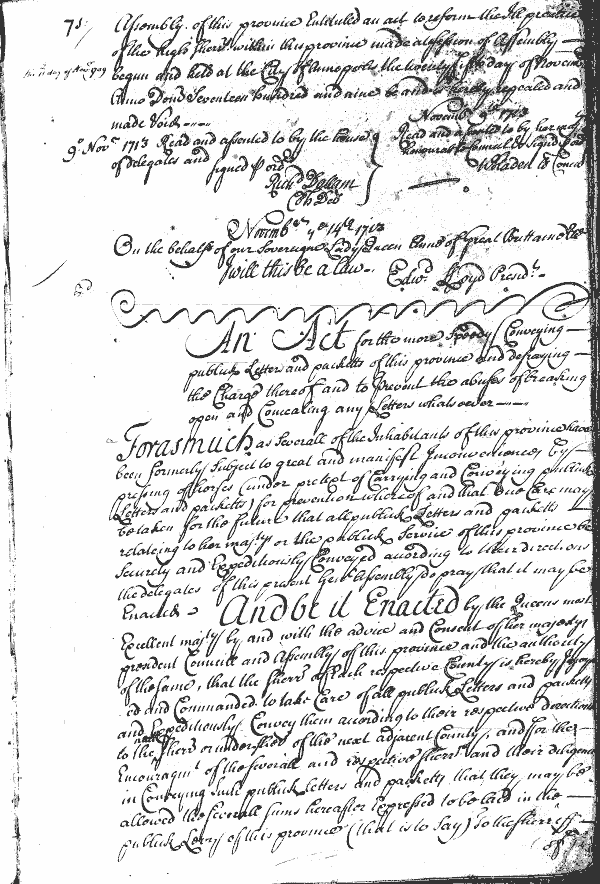 71
Assembly of this province Entituled an act to reform the Ill practice
of the high Sherr within this province made at a Session of Assembly
begun and held at the City of Annapolis the twenty day of Novem
Anno Dom Seventeen hundred and nine be and is hereby repealed and
made Void
Novemb 9th 1713
9o Novr 1713 Read and assented to by the house
of delegates and signed p ord
Richd Dallam
Cl h Del
Read and assented to by her maj
honourable Councill & Signd p ord
Novembr ye 14th 1713
On the behalfe of our Sovereigne Lady Queen Anne of Great Brittaine &c
I will this be a law. Edwd Lloyd Presidt.
An Act for the more Speedy Conveying
publick Letters and packetts of this province and defraying
the Charge thereof and to prevent the abuses of breaking
open and Concealing any Letters whatsoever
Forasmuch as Severall of the Inhabitants of this province have
been formerly Subject to great and manifest Inconveniences by
pressing of horses (under pretext of Carrying and Conveying publick
Letters and packetts) for prevention whereof and that due Care may
be taken for the future that all publick Letters and packetts
relateing to her majty or the publick Service of this province be
Securely and Expeditiously Conveyed according to their directions
the delegates of this present Genll Assembly do pray that it may be
Enacted And be it Enacted by the Queens most
Excellent majty by and with the advice and Consent of her majestys
president Councill and Assembly of this province and the authority
of the same, that the Sherr of Each respective County is hereby
ed and Commanded to take Care of all publick Letters and packetts
and Expeditiously Convey them according to their respective directions
to the Sherr or under Sherr of the next adjacent County, and for the
Encouragmt of the Severall and respective Sherrs and their diligence
in Conveying such publick Letters and packetts that they may be
allowed the Severall Sums hereafter Expressed to be laid in the
publick Levy of this province (that is to Say) to the Sherriff
of